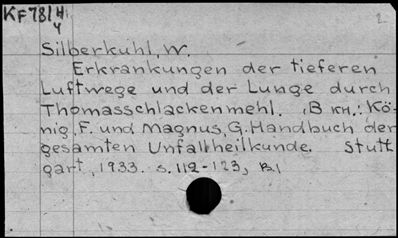 KF78/4
4
2
Silberkuhl, W.
Erkrankungen der tieferen
Luftwege und der Lunge durch
Thomasschlackenmehl. , В кн.: Kö-
nig, F. und Magnus, G. Handbuch der
gesamten Unfallheilkunde. Stutt
gart, 1933. S. 112-123,